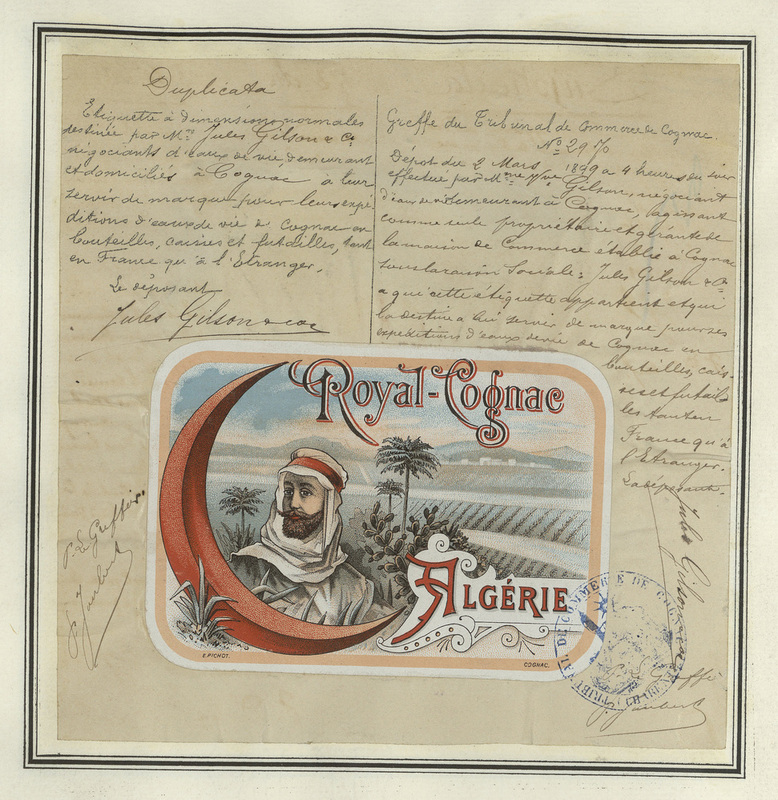 Duplicata
Etiquette à dimensions normales
destinée par Mrs Jules Gilson & Co
négociants d'eaux de vie, demeurant
et domiciliés à Cognac à leur
servir de marque pour leurs expé
ditions d'eaux de vie de Cognac en
bouteilles, caisses et futailles, tant
en France qu'à l'Etranger.
Le déposant
Jules Gilson & Co
Greffe du Tribunal de Commerce de Cognac.
No 2970
Dépôt du 2 Mars 1899 à 4 heures du soir
effectué par Mme Vve Gilson, négociant
d'eaux de vie demeurant à Cognac, agissant
comme seule propriétaire et gérante de
la maison de Commerce établie à Cognac
sous la raison Sociale: Jules Gilson & Co
a qui cette étiquette appartient et qui
la destine à lui servir de marque pour ses
expéditions d'eaux de vie de Cognac en
bouteilles, cais-
ses et futail
les tant en
France qu'à
l'Etranger.
La déposante.
Jules Gilson & Co
Royal-Cognac
Algérie
E. PICHOT.
COGNAC.
P. Le Greffier
TRIBUNAL DE COMMERCE DE COGNAC
P. Le Greffier